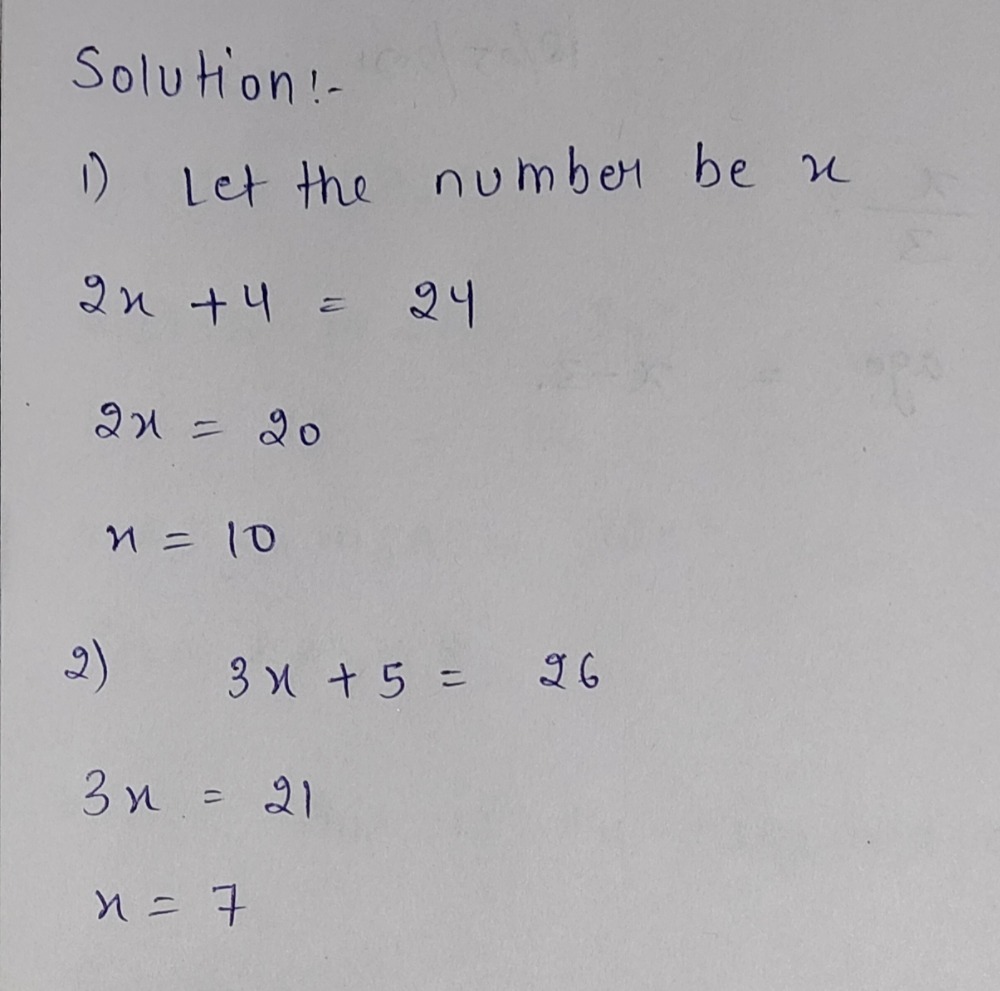 Solution:-
1) Let the number be x
2x + 4 = 24
2x = 20
x = 10
2) 3x + 5 = 26
3x = 21
x = 7